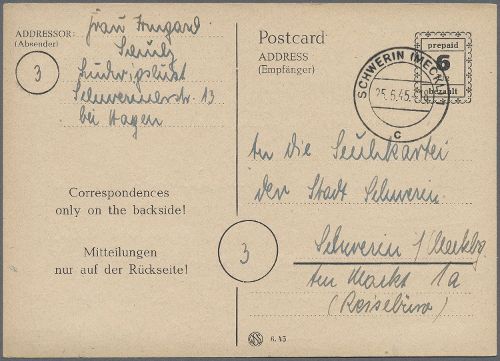 ADDRESSOR:
(Absender)
3
Frau Irmgard
Schulz
Ludwigslust
Schwerinerstr. 13
bei Hagen
Correspondences
only on the backside!
Mitteilungen
nur auf der Rückseite!
Postcard
ADDRESS
(Empfänger)
prepaid
6
bezahlt
SCHWERIN (MECKL)
25.6.45.
c
An die Suchkartei
der Stadt Schwerin.
3
Schwerin i/Mecklbg
Am Markt 1a
(Reisebüro)
6. 45